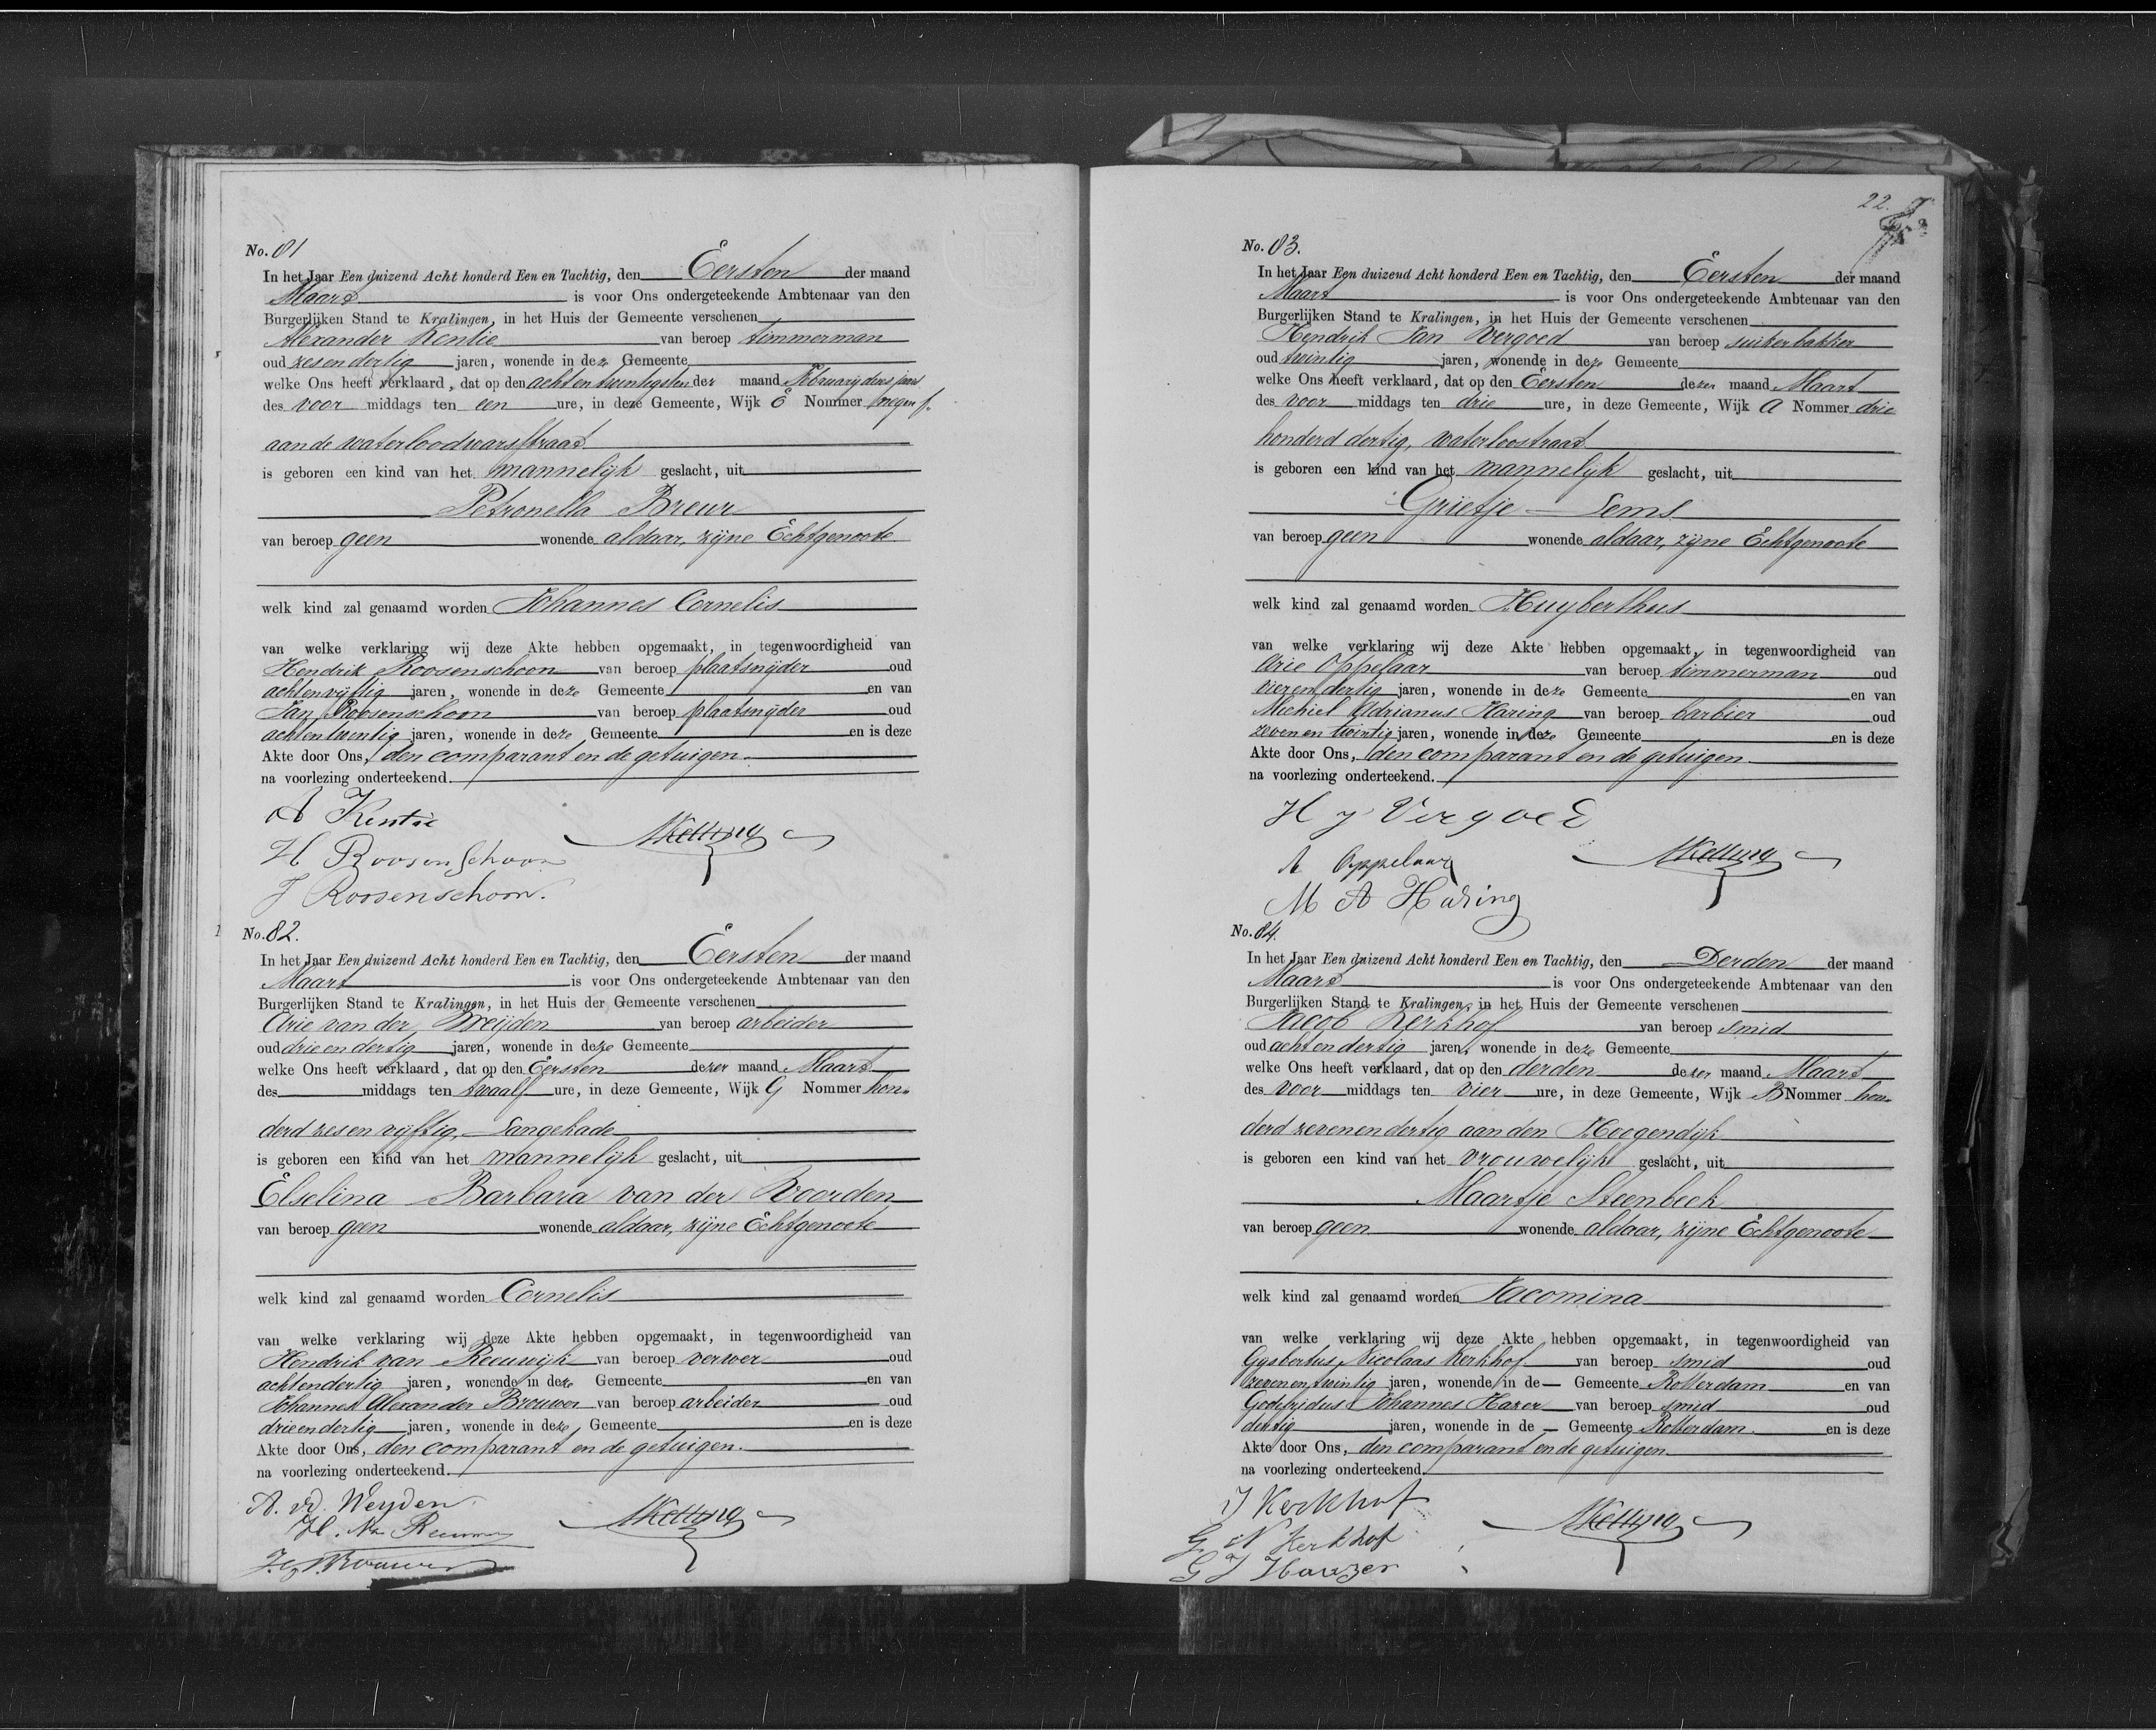 No. 81
In het Jaar Een duizend Acht honderd Een en Tachtig, den Eersten der maand
Maart is voor Ons ondergeteekende Ambtenaar van den
Burgerlijken Stand te Kralingen, in het Huis der Gemeente verschenen
Alexander Kentie van beroep timmerman
oud zesendertig jaren, wonende in deze Gemeente
welke Ons heeft verklaard, dat op den achtentwintigsten der maand February dezes jaars
des voor middags ten een ure, in deze Gemeente, Wijk E Nommer negen f.
aan de waterloodwarsstraat
is geboren een kind van het mannelijk geslacht, uit
Petronella Breur
van beroep geen wonende aldaar, zijne Echtgenoote
welk kind zal genaamd worden Johannes Cornelis
van welke verklaring wij deze Akte hebben opgemaakt, in tegenwoordigheid van
Hendrik Roosenschoon van beroep plaatsnijder oud
achtenvijftig jaren, wonende in deze Gemeente en van
Jan Roosenschoon van beroep plaatsnijder oud
achtentwintig jaren, wonende in deze Gemeente en is deze
Akte door Ons, den comparant en de getuigen
na voorlezing onderteekend.
A Kentie
H Roosenschoon
J Roosenschoon.
No. 82.
In het Jaar Een duizend Acht honderd Een en Tachtig, den Eersten der maand
Maart is voor Ons ondergeteekende Ambtenaar van den
Burgerlijken Stand te Kralingen, in het Huis der Gemeente verschenen
Arie van der Weijden van beroep arbeider
oud drieendertig jaren, wonende in deze Gemeente
welke Ons heeft verklaard, dat op den Eersten dezer maand Maart
des middags ten twaalf ure, in deze Gemeente, Wijk G Nommer hon„
derd zesenvijftig, Langekade
is geboren een kind van het mannelijk geslacht, uit
Elselina Barbara van der Voorden
van beroep geen wonende aldaar, zijne Echtgenoote
welk kind zal genaamd worden Cornelis
van welke verklaring wij deze Akte hebben opgemaakt, in tegenwoordigheid van
Hendrik van Reeuwijk van beroep verwer oud
achtendertig jaren, wonende in deze Gemeente en van
Johannes Alexander Brouwer van beroep arbeider oud
drieendertig jaren, wonende in deze Gemeente en is deze
Akte door Ons, den comparant en de getuigen.
na voorlezing onderteekend.
A. vd. Weyden
22.
No. 83.
In het Jaar Een duizend Acht honderd Een en Tachtig, den Eersten der maand
Maart is voor Ons ondergeteekende Ambtenaar van den
Burgerlijken Stand te Kralingen, in het Huis der Gemeente verschenen
Hendrik Jan Vergoed van beroep suikerbakker
oud twintig jaren, wonende in deze Gemeente
welke Ons heeft verklaard, dat op den Eersten dezer maand Maart
des voor middags ten drie ure, in deze Gemeente, Wijk A Nommer drie
honderd dertig, waterloostraat
is geboren een kind van het mannelijk geslacht, uit
Grietje Lems
van beroep geen wonende aldaar, zijne Echtgenoote
welk kind zal genaamd worden Huyberthus
van welke verklaring wij deze Akte hebben opgemaakt, in tegenwoordigheid van
Arie Oppelaar van beroep timmerman oud
vierendertig jaren, wonende in deze Gemeente en van
Michiel Adrianus Haring van beroep barbier oud
zevenentwintig jaren, wonende in deze Gemeente en is deze
Akte door Ons, den comparant en de getuigen
na voorlezing onderteekend.
H J Vergoed
A Oppelaar
M A Haring
No. 84.
In het Jaar Een duizend Acht honderd Een en Tachtig, den Derden der maand
Maart is voor Ons ondergeteekende Ambtenaar van den
Burgerlijken Stand te Kralingen, in het Huis der Gemeente verschenen
Jacob Kerkhof van beroep smid
oud achtendertig jaren, wonende in deze Gemeente
welke Ons heeft verklaard, dat op den derden dezer maand Maart
des voor middags ten vier ure, in deze Gemeente, Wijk B Nommer hon„
derd zevenendertig aan den Hoogendijk
is geboren een kind van het vrouwelijk geslacht, uit
Maartje Steenbeek
van beroep geen wonende aldaar, zijne Echtgenoote
welk kind zal genaamd worden Jacomina
van welke verklaring wij deze Akte hebben opgemaakt, in tegenwoordigheid van
Gijsbertus Nicolaas Kerkhof van beroep smid oud
zevenentwintig jaren, wonende in de Gemeente Rotterdam en van
Godfridus Johannes Hazer van beroep smid oud
dertig jaren, wonende in de Gemeente Rotterdam en is deze
Akte door Ons, den comparant en de getuigen
na voorlezing onderteekend.
J Kerkhof
G N Kerkhof
G J Hauzer